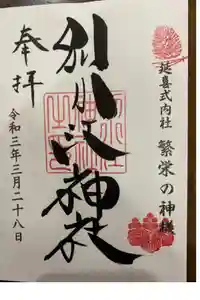 延喜式内社 繁栄の神様
別小江神社
奉拝
令和三年三月二十八日